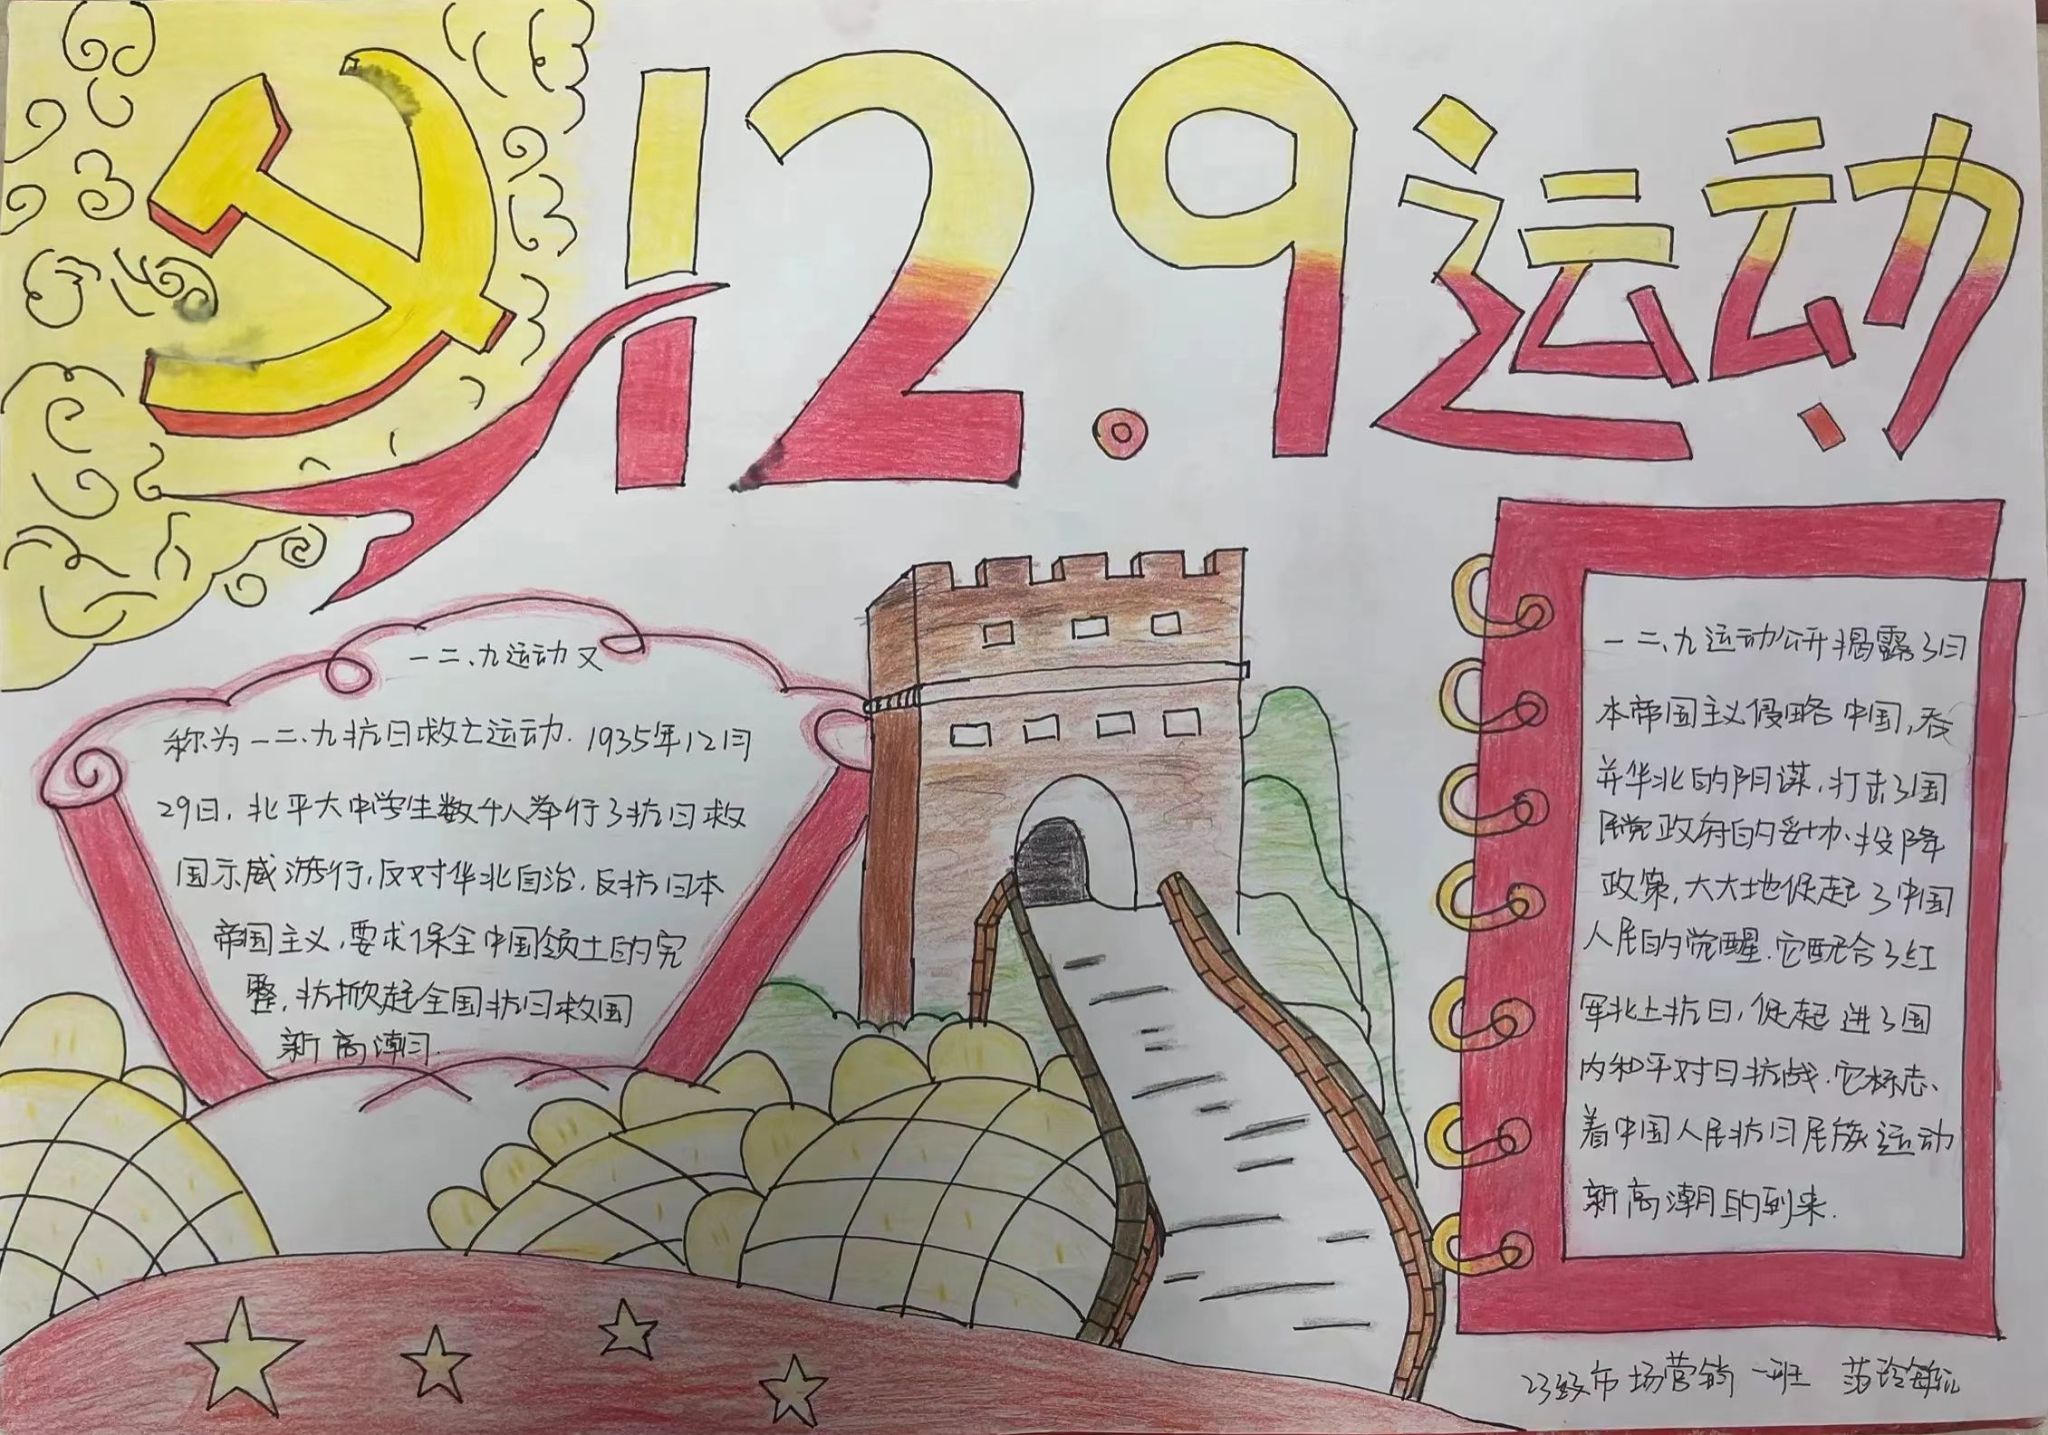 12.9运动
一二、九运动又
称为一二、九抗日救亡运动.1935年12月
29日，北平大中学生数千人举行了抗日救
国示威游行，反对华北自治，反抗日本
帝国主义，要求保全中国领土的完
整，抗掀起全国抗日救国
新高潮.
一二、九运动公开揭露了日
本帝国主义侵略中国，吞
并华北的阴谋，打击了国
民党政府的妥协、投降
政策，大大地促起了中国
人民的觉醒.它配合了红
军北上抗日，促起进了国
内和平对日抗战.它标志、
着中国人民抗日民族运动
新高潮的到来.
23级市场营销一班